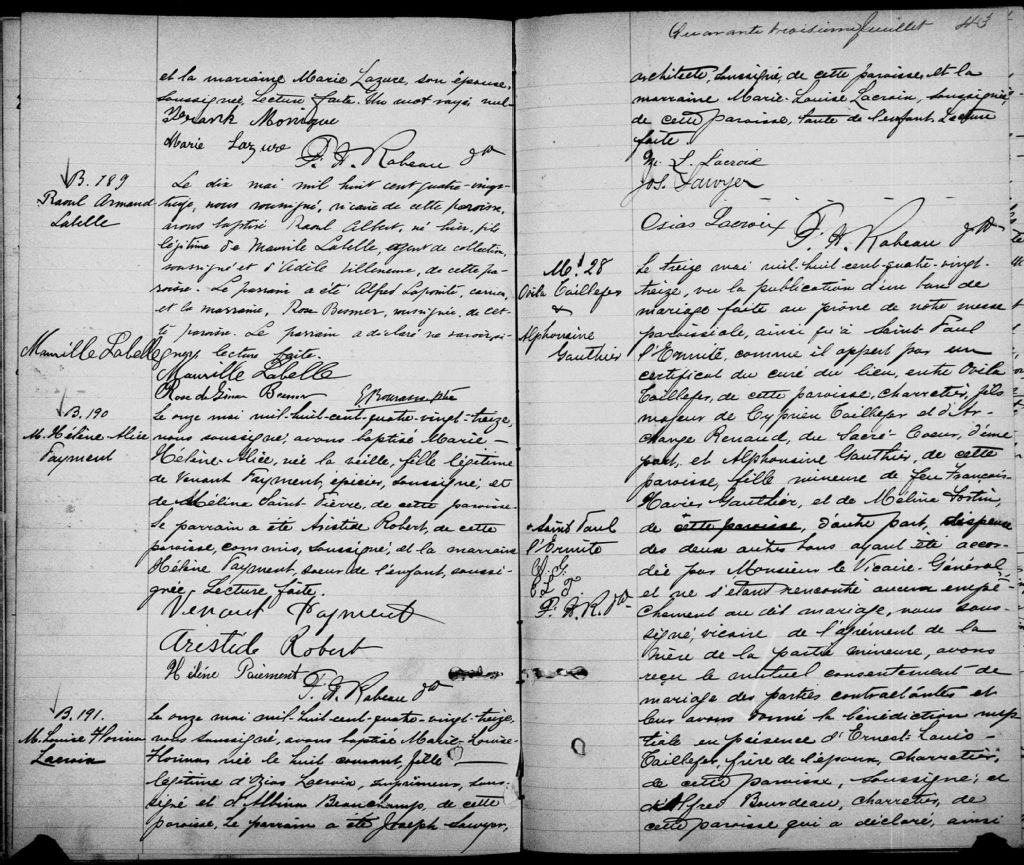 et la marraine Marie Lazure, son épouse,
soussignée, Lecture faite. Un mot rayé nul
Frank Monique
Marie Lazure
F. A. Rabeau
B. 189
Raoul Armand
Labelle
Le dix mai mil huit cent quatre-vingt-
treize, nous soussigné, vicaire de cette paroisse,
avons baptisé Raoul Albert, né hier, fils
légitime de Maurile Labelle, agent de collection,
soussigné et d'Adèle Villeneuve, de cette pa-
roisse. Le parrain a été Alfred Lapointe,
et la marraine, Rose soussignée, de cet-
te paroisse. Le parrain a déclaré ne savoir si-
gner, lecture faite.
Maurille Labelle
Maurille Labelle
Rose de Gina
E. Bourassa ptre
B. 190
M. Hélène-Alice
Payment
Le onze mai mil-huit-cent-quatre-vingt-treize,
nous soussigné, avons baptisé Marie-
Hélène-Alice, née la veille, fille légitime
de Venant Payment, épicier, soussigné, et
de Mélina Saint-Pierre, de cette paroisse.
Le parrain a été Aristide Robert, de cette
paroisse, commis, soussigné, et la marraine
Hélène Payment, soeur de l'enfant, soussi-
gnée, Lecture faite.
Venant Payment
Aristide Robert
Hélène Paiement
F. A. Rabeau
B. 191.
M. Louise
Lacroix
Le onze mai mil-huit-cent-quatre-vingt-treize,
nous soussigné, avons baptisé Marie-Louise-
née le huit courant, fille
légitime d'Ozias Lacroix, imprimeur, sous-
signé et d'Albina Beauchamp, de cette
paroisse. Le parrain a été Joseph Sawyer,
Quarante-troisième feuillet 43
architecte, soussigné, de cette paroisse, et la
marraine Marie-Louise Lacroix, soussignée,
de cette paroisse, tante de l'enfant. Lecture
faite.
M. L. Lacroix
Jos. Sawyer
Osias Lacroix
F. A. Rabeau
M. 28
Ovila Taillefer
&
Alphonsine
Gauthier
Le treize mai mil-huit-cent-quatre-vingt-
treize, vu la publication d'un ban de
mariage faite au prône de notre messe
paroissiale, ainsi qu'à Saint Paul
l'Ermite, comme il appert par un
certificat du curé du lieu, entre Ovila
Taillefer, de cette paroisse, charretier, fils
majeur de Cyprien Taillefer et d'Ar-
change Renaud, du Sacré-Coeur, d'une
part, et Alphonsine Gauthier, de cette
paroisse, fille mineure de feu François-
Xavier Gauthier, et de Mélina Fortin,
de cette paroisse, d'autre part, dispense
des deux autres bans ayant été accor-
dée par Monsieur le Vicaire-Général
et ne s'étant rencontré aucun empê-
chement au dit mariage, nous sous-
signé, vicaire de l'agrément de la
mère de la partie mineure, avons
reçu le mutuel consentement de
mariage des parties contractantes et
leur avons donné la bénédiction nup-
tiale en présence d'Ernest-Louis-
Taillefer, frère de l'époux, charretier,
de cette paroisse, soussigné, et
d'Alfred Bourdeau, charretier, de
cette paroisse qui a déclaré, ainsi
Saint Paul
l'Ermite
F. A. R.